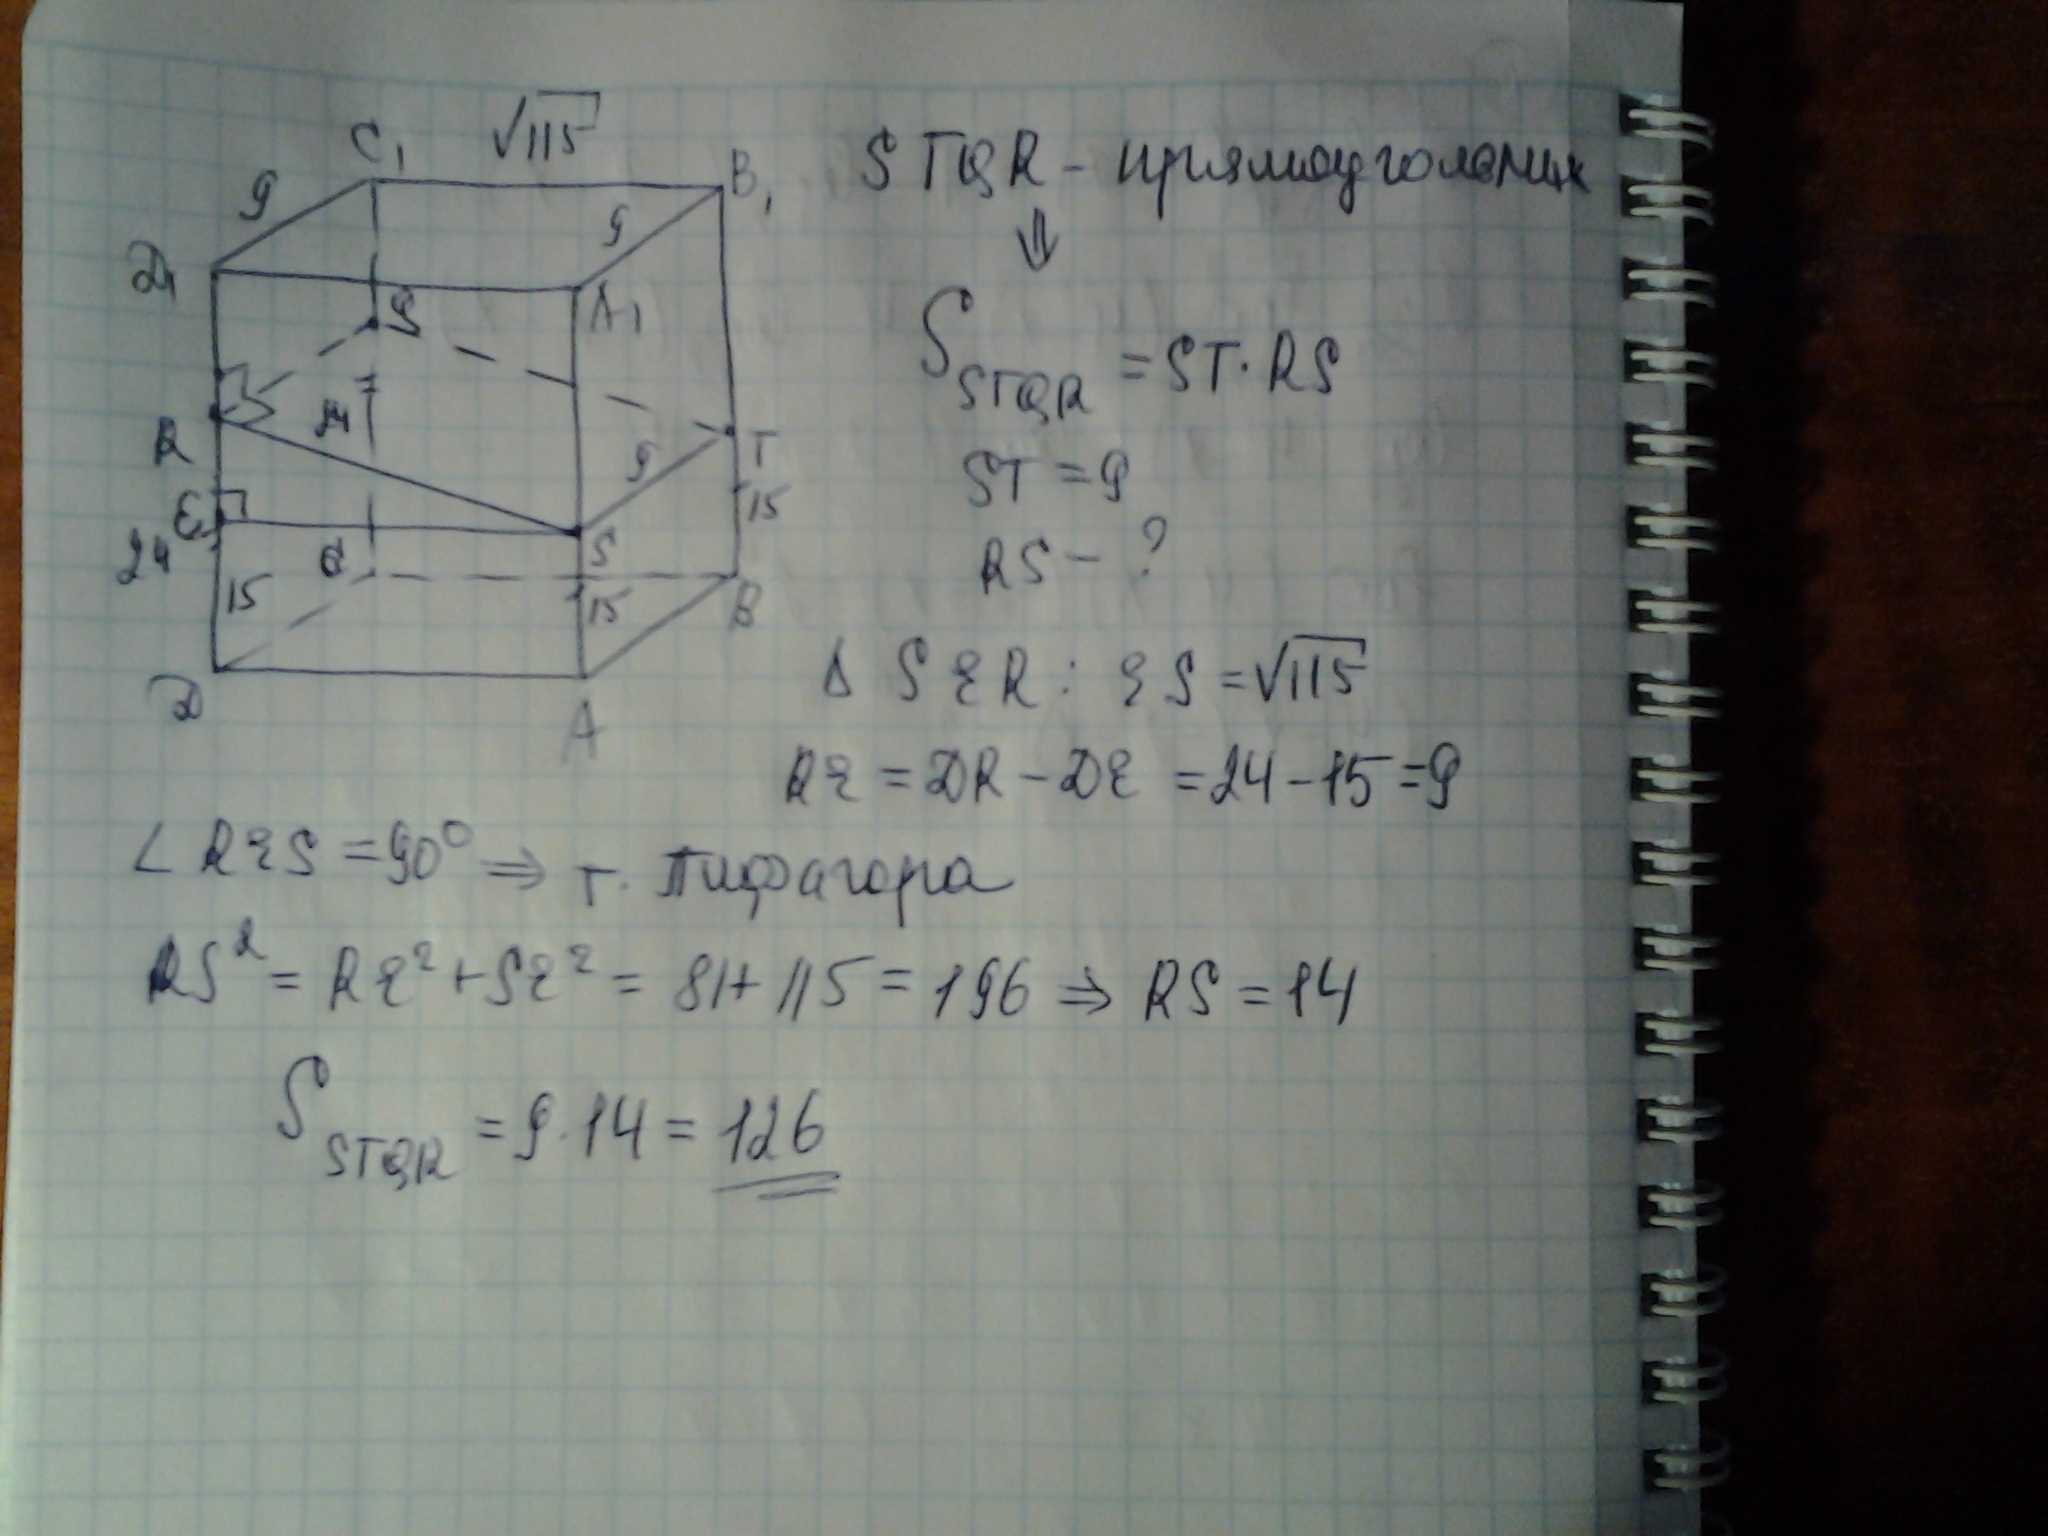 C₁ √115 B₁
9 9
D₁ A₁
Q
R 24 T
9 15
E S
24 15 15
C B
D A
STQR - прямоугольник
⇓
S_STQR = ST · RS
ST = 9
RS - ?
Δ SER : ES = √115
RE = DR - DE = 24 - 15 = 9
∠ RES = 90° ⇒ т. Пифагора
RS² = RE² + SE² = 81 + 115 = 196 ⇒ RS = 14
S_STQR = 9 · 14 = 126